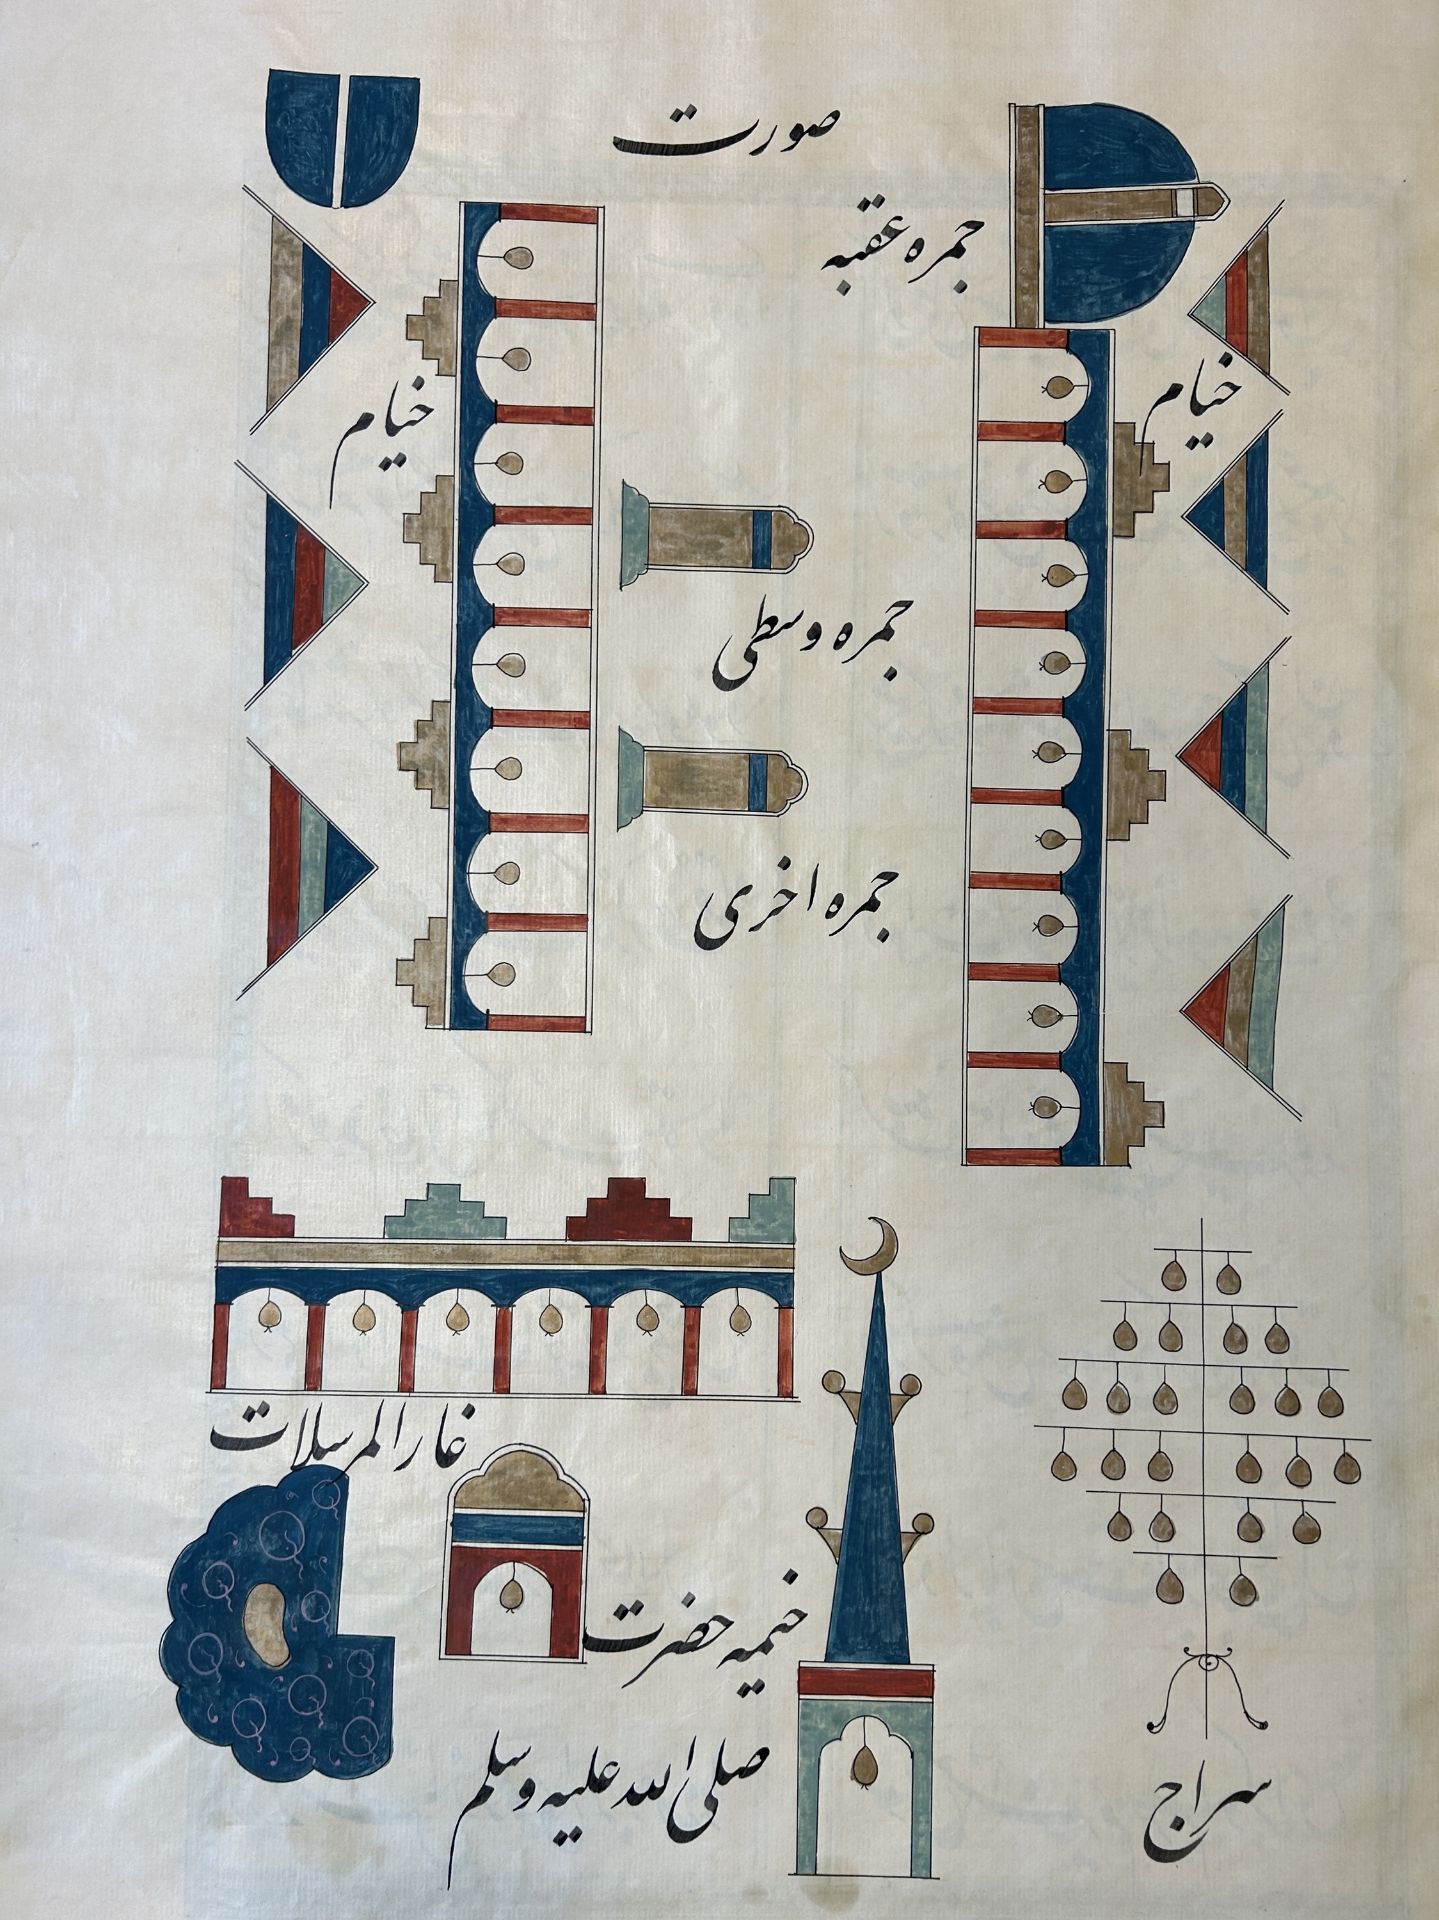 صورت
جمره عقبه
خیام
خیام
جمره وسطی
جمره اخری
غار المرسلات
خیمه حضرت
صلی الله علیه وسلم
سراج